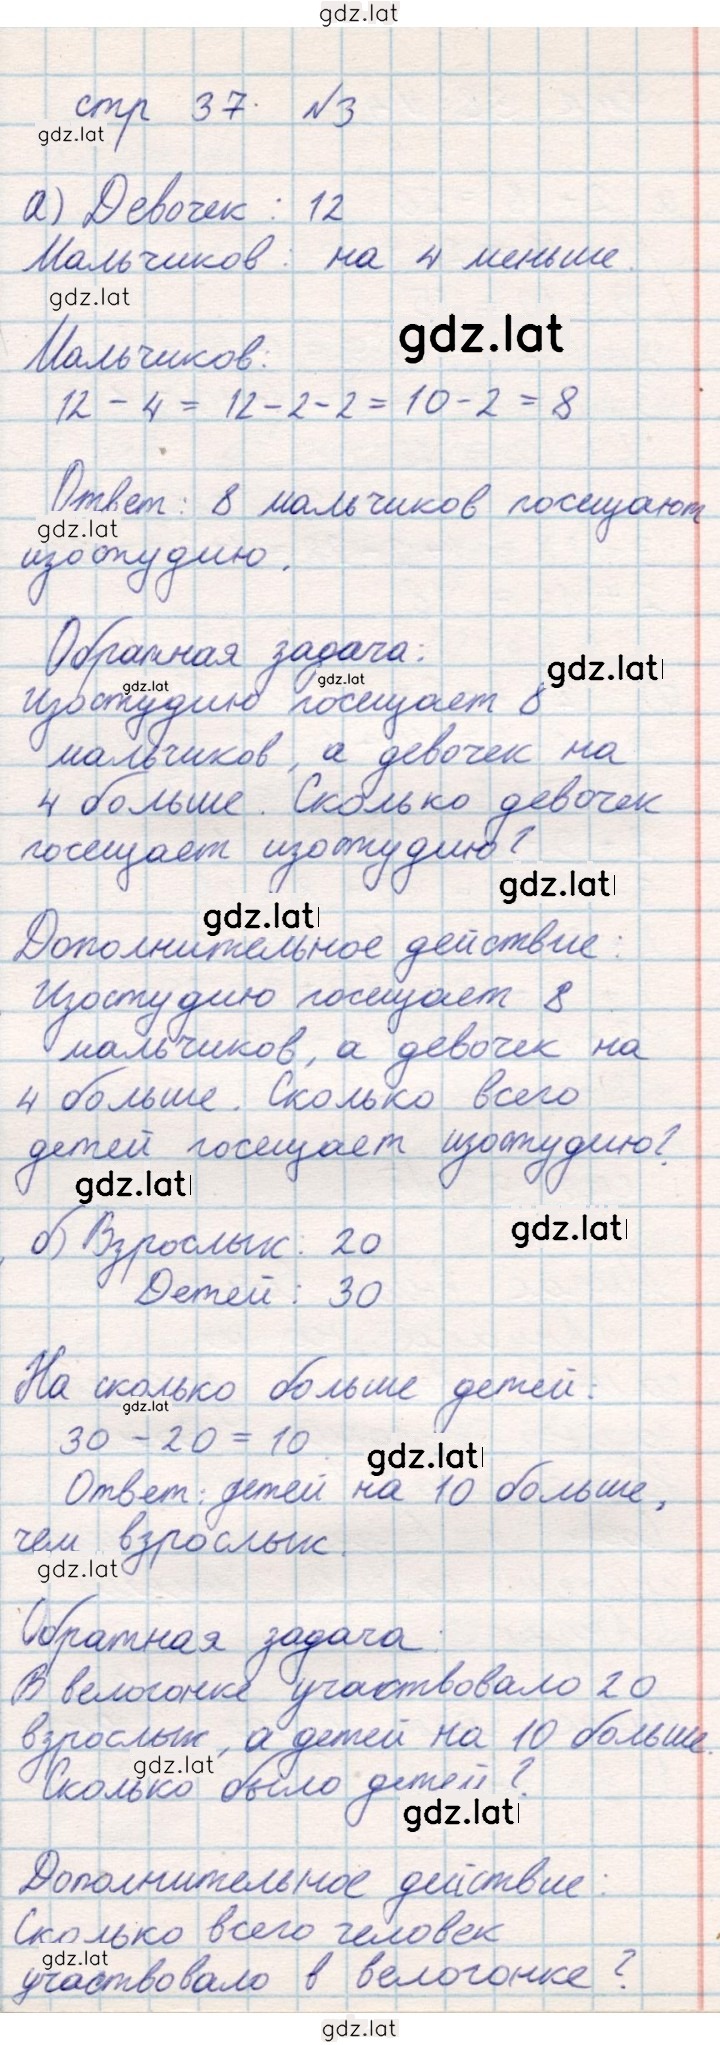 gdz.lat
стр 37. №3
gdz.lat
а) Девочек: 12
Мальчиков: на 4 меньше.
gdz.lat
gdz.lat
Мальчиков:
12 - 4 = 12 - 2 - 2 = 10 - 2 = 8
Ответ: 8 мальчиков посещают
gdz.lat
изостудию.
Обратная задача:
gdz.lat
gdz.lat gdz.lat
Изостудию посещает 8
мальчиков, а девочек на
4 больше. Сколько девочек
посещает изостудию?
gdz.lat
gdz.lat
Дополнительное действие:
Изостудию посещает 8
мальчиков, а девочек на
4 больше. Сколько всего
детей посещает изостудию?
gdz.lat
gdz.lat
б) Взрослых: 20
Детей: 30
На сколько больше детей:
gdz.lat
30 - 20 = 10
gdz.lat
Ответ: детей на 10 больше,
чем взрослых.
gdz.lat
Обратная задача:
В велогонке участвовало 20
взрослых, а детей на 10 больше.
gdz.lat
Сколько было детей?
gdz.lat
Дополнительное действие:
Сколько всего человек
gdz.lat
участвовало в велогонке?
gdz.lat